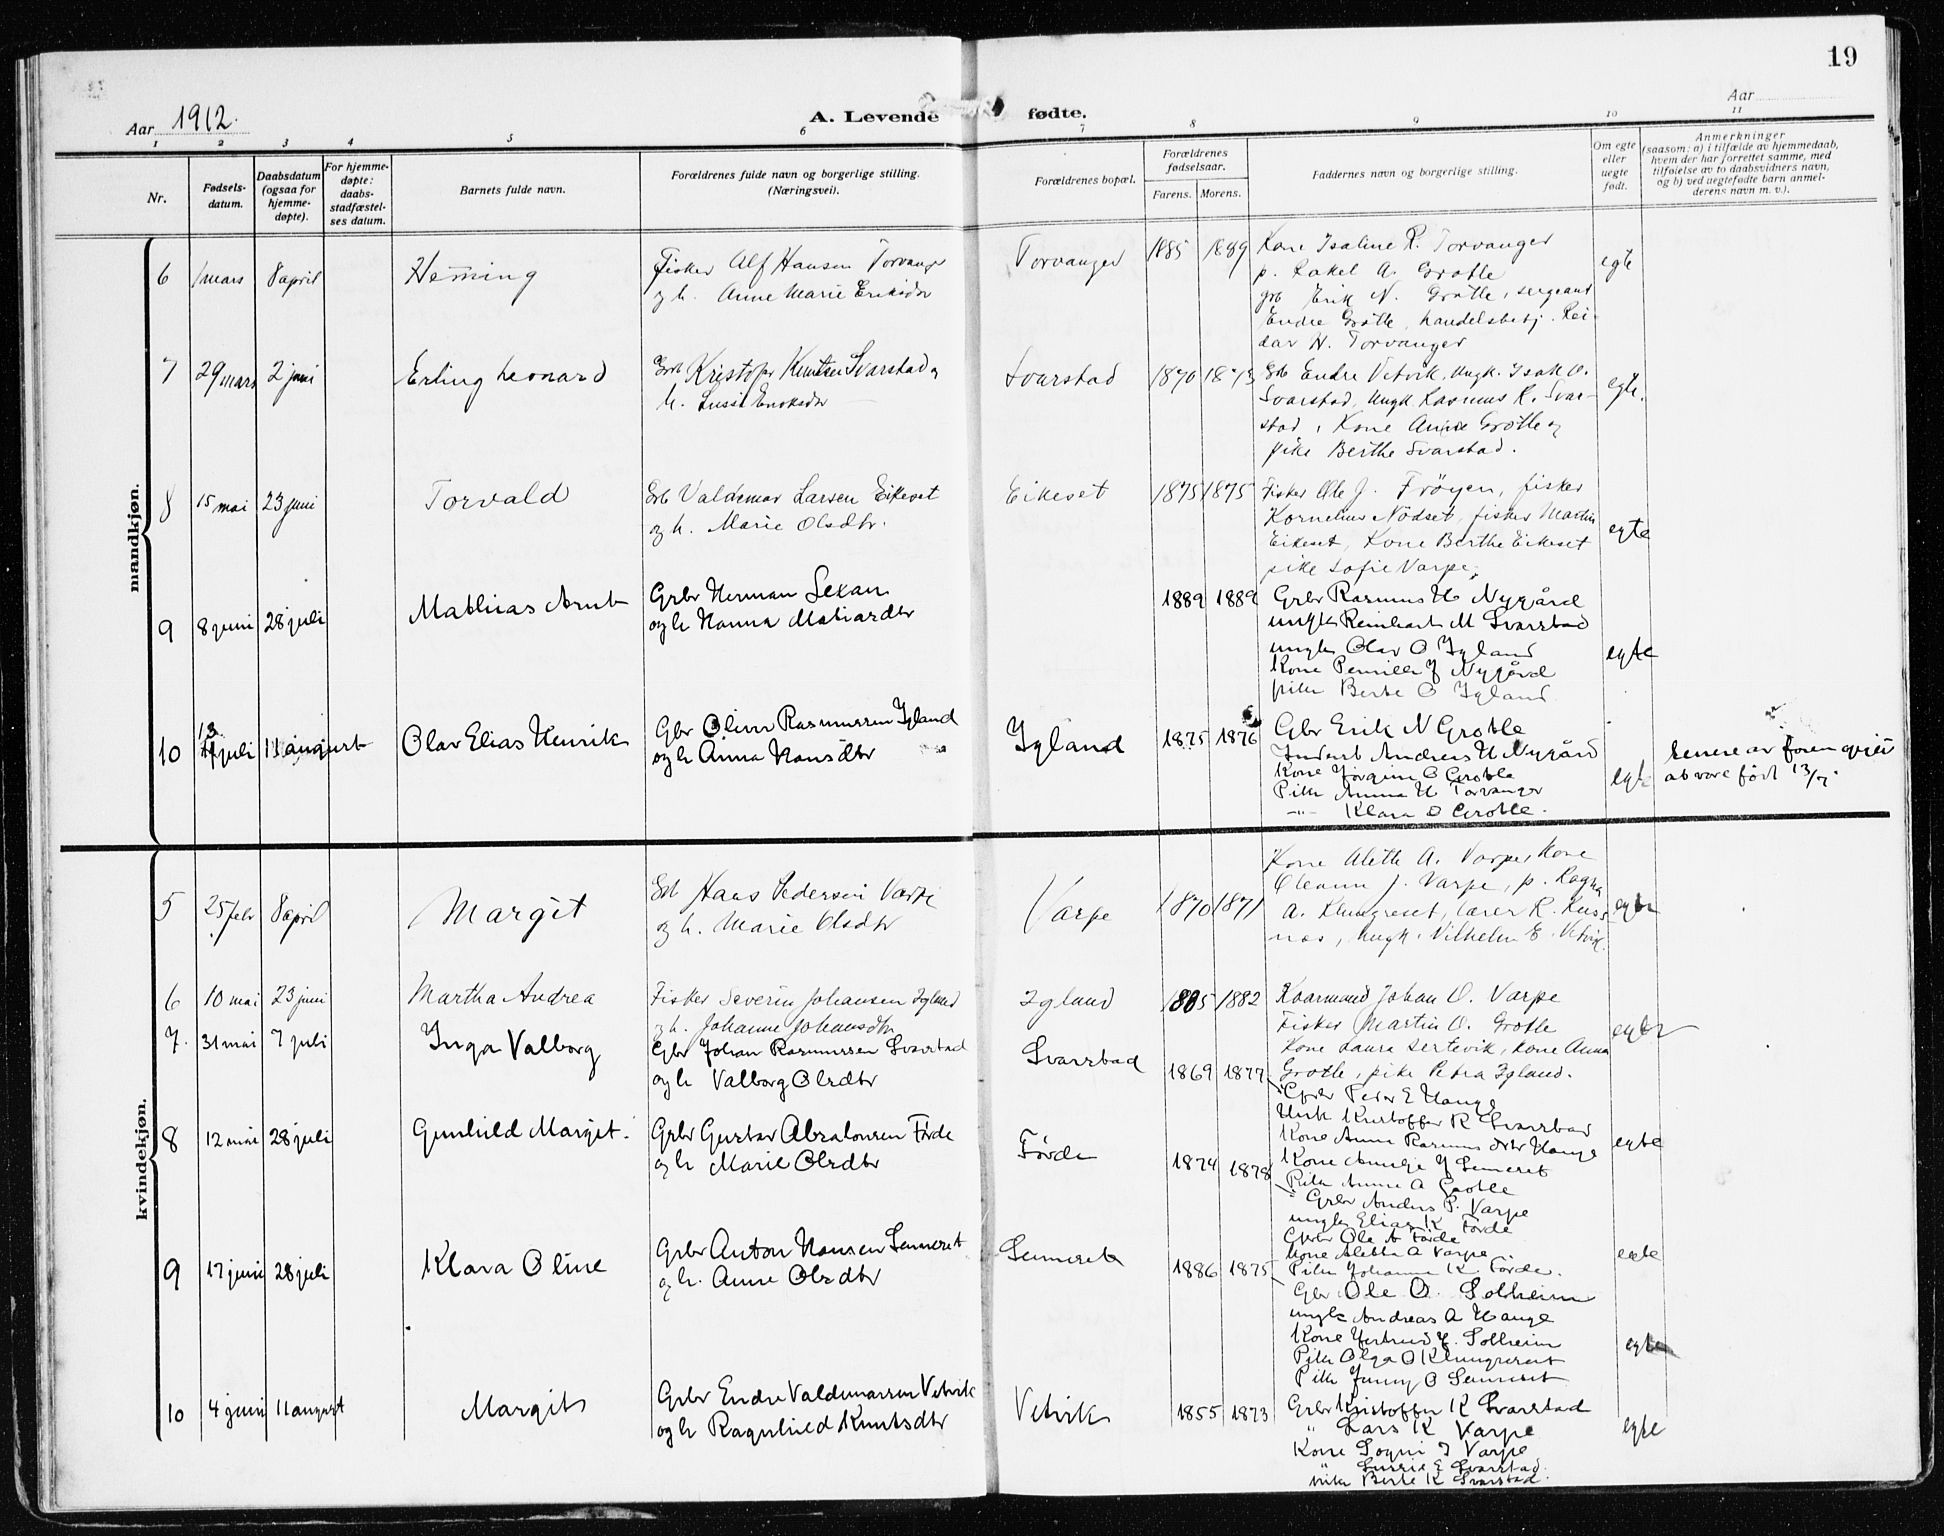 19
Aar 1912.
A. Levende fødte.
Aar
1 2 3 4 5 6 7 8 9 10 11
Nr.
Fødsels-
datum.
Daabsdatum
(ogsaa for
hjemme-
døpte).
For hjemme-
døpte:
daabs-
stadfæstel-
ses datum.
Barnets fulde navn.
Forældrenes fulde navn og borgerlige stilling.
(Næringsvei).
Forældrenes bopæl.
Forældrenes
fødselsaar.
Farens. Morens.
Faddernes navn og borgerlige stilling.
Om egte
eller
uegte
født.
Anmerkninger
(saasom: a) i tilfælde av hjemmedaab,
hvem der har forrettet samme, med
tilføielse av to daabsvidners navn,
og b) ved uegtefødte barn anmel-
derens navn m. v.).
mandkjøn.
6 1 mars 8 april Heming
Fisker Alf Hansen Torvanger
og h. Anne Marie Eriksdtr
Torvanger 1885 1889
Kone Isaline R. Torvanger
p. Rakel A. Grotle
grb Erik N. Grotle, sergeant
Endre Grotle, handelsbetj. Rei-
dar H. Torvanger
egte
7 29 mars 2 juni Erling Leonard
Grb Kristofer Knutsen Svarstad og
h. Lussi Enoksdtr
Svarstad 1870 1873
Grb Endre Vetvik, ungk. Isak O.
Svarstad, ungk. Rasmus R. Svar-
stad, Kone Anne Grotle og
pike Berthe Svarstad.
egte.
8 15 mai 23 juni Torvald
Grb Valdemar Larsen Eikeset
og h. Marie Olsdtr.
Eikeset 1875 1875
Fisker Ole J. Fröyen, fisker
Kornelius Nödset, fisker Martin
Eikeset, Kone Berthe Eikeset
pike Sofie Varpe.
egte
9 8 juni 28 juli Mathias Arnt
Grbr Herman Sexan
og h Hanna Mathiasdtr
1889 1889
Grbr Rasmus H Nygård
ungk Reinhart M Svarstad
ungk Olav O Igland
Kone Pernille J Nygård
pike Berte O Igland
egte
10 13 juli 11 august Olav Elias Henrik
Gbr Oliver Rasmussen Igland
og h Anna Hansdtr
Igland 1875 1876
Gbr Erik N Grotle
Andreas H Nygård
Kone Jörgine O Grotle
Pike Anna H Torvanger
-"- Klara O Grotle.
egte
senere av
at være född 13/7.
kvindekjøn.
5 25 febr 8 april Margit
Grb Hans Pedersen Varpe
og h. Marie Olsdtr
Varpe 1870 1871
Kone Alette A. Varpe, Kone
Oleanna J. Varpe, p. Ragna
A. Klungreset, lærer R. Russ-
nes, ungk. Vilhelm E. Vetvik.
egte
6 10 mai 23 juni Martha Andrea
Fisker Severin Johansen Igland
og h. Johanne Johannsdtr
Igland 1885 1882
Kaarmand Johan O. Varpe
Fisker Martin O. Grotle
Kone Laura Sertevik, Kone Anna
Grotle, pike Petra Igland.
egte
7. 31 mai 7 juli Inga Valborg
Gbr Johan Rasmussen Svarstad
og h Valborg Olsdtr
Svarstad 1869 1877
Gbr Peder E Hauge
Kristoffer R Svarstad
Kone Anna Rasmusdtr Hauge
Kone J Senneset
Pike Anna A Grotle
egte
8 12 mai 28 juli Gunhild Margit.
Grbr Gustav Absalonsen Förde
og h Marie Olsdtr
Förde 1874 1878
Grbr Anders P. Varpe
ungk Elias K Förde
Gbr Ole A Förde
Kone Aletta A Varpe
Pike Johanna K Förde.
egte
9 17 juni 28 juli Klara Oline
Grbr Anton Hansen Senneset
og h. Anne Olsdtr
Senneset 1886 1875
Gbr Ole O. Solheim
ungk Andreas A Hauge
Kone Jertrud J. Solheim
Pike Olga O Klungreset
Pike Jenny O Senneset
egte
10 4 juni 11 august Margit
Grbr Endre Valdemarsen Vetvik
og h Ragnhild Knutsdtr
Vetvik 1855 1873
Grbr Kristoffer K Svarstad
" Lars K Varpe
Kone Sogni J Varpe
" Lussie E Svarstad.
pike Berte K Svarstad.
egte